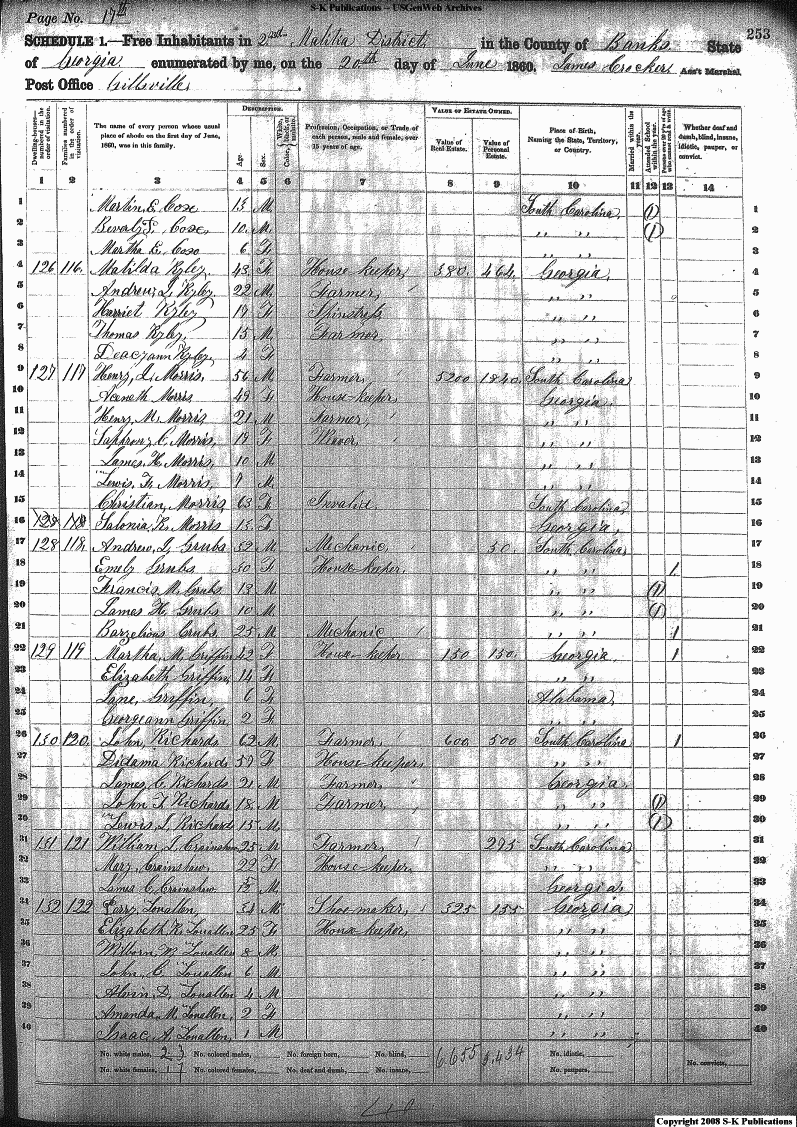 S-K Publications – USGenWeb Archives
Page No. 17th
253
SCHEDULE 1.—Free Inhabitants in 2nd Malitia District in the County of Banks State
of Georgia enumerated by me, on the 20th day of June 1860. James Crocker Ass't Marshal.
Post Office Gillsville
Dwelling-houses numbered in the order of visitation.
Families numbered in the order of visitation.
The name of every person whose usual place of abode on the first day of June, 1860, was in this family.
DESCRIPTION.
Age.
Sex.
Color, White, black, or mulatto.
Profession, Occupation, or Trade of each person, male and female, over 15 years of age.
VALUE OF ESTATE OWNED.
Value of Real Estate.
Value of Personal Estate.
Place of Birth, Naming the State, Territory, or Country.
Married within the year.
Attended School within the year.
Persons over 20 y'rs of age who cannot read & write.
Whether deaf and dumb, blind, insane, idiotic, pauper, or convict.
1 2 3 4 5 6 7 8 9 10 11 12 13 14
1 Martin E. Cose 13 M South Carolina 1 1
2 Cose 10 M " " 1 2
3 Martha E. Cose 6 F " " 3
4 126 116 Matilda Kyley 43 F House keeper 380 464 Georgia 4
5 Andrew J. Kyley 22 M Farmer " " 5
6 Harriet Kyley 17 F " " 6
7 Thomas Kyley 15 M Farmer " " 7
8 Kyley 4 F " " 8
9 127 117 Henry L. Morris 56 M Farmer 5200 1840 South Carolina 9
10 Morris 49 F House-keeper Georgia 10
11 Henry M. Morris 21 M Farmer " " 11
12 C. Morris 19 F Weaver " " 12
13 James H. Morris 10 M " " 13
14 Lewis F. Morris 7 M " " 14
15 Christian Morris 63 F Invalid South Carolina 15
16 Salonia K. Morris 15 F Georgia 16
17 128 118 Andrew J. Grubs 52 M Mechanic 50 South Carolina 17
18 Emely Grubs 50 F House-keeper " " 1 18
19 Francis M. Grubs 13 M " " 1 19
20 James H. Grubs 10 M " " 1 20
21 Grubs 25 M Mechanic " " 1 21
22 129 119 Martha M. Griffin 42 F House-keeper 150 150 Georgia 1 22
23 Elizabeth Griffin 14 F " " 23
24 Jane Griffin 6 F Alabama 24
25 Georgeann Griffin 2 F " " 25
26 130 120 John Richards 62 M Farmer 600 500 South Carolina 1 26
27 Didama Richards 57 F House-keeper " " 27
28 James C. Richards 21 M Farmer Georgia 28
29 John T. Richards 18 M Farmer " " 1 29
30 Lewis S. Richards 15 M " " 1 30
31 131 121 William L. Crainshaw 25 M Farmer 295 South Carolina 31
32 Mary Crainshaw 22 F House-keeper " " 32
33 James C. Crainshaw M Georgia 33
34 132 122 Perry Louallen 34 M Shoe-maker 325 155 Georgia 34
35 Elizabeth K. Louallen 25 F House-keeper " " 35
36 Wilborn W. Louallen 8 M " " 36
37 John C. Louallen 6 M " " 37
38 Alvin D. Louallen 4 M " " 38
39 Amanda M. Louallen 2 F " " 39
40 Isaac A. Louallen 1 M " " 40
No. white males, 23 No. colored males, No. foreign born, No. blind, 6.655 3.434 No. idiotic,
No. white females, 17 No. colored females, No. deaf and dumb, No. insane, No. paupers, No. convicts,
40
Copyright 2008 S-K Publications